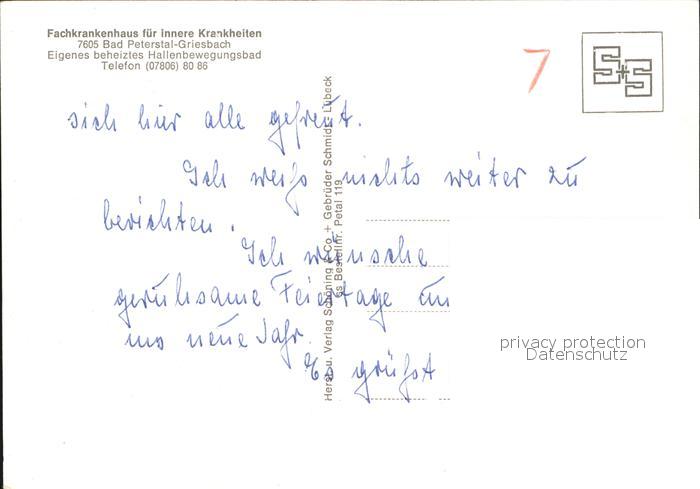 Fachkrankenhaus für innere Krankheiten
7605 Bad Peterstal-Griesbach
Eigenes beheiztes Hallenbewegungsbad
Telefon (07806) 80 86
7
S+S
sich hier alle gefreut.
Ich weiß nichts weiter zu
berichten.
Ich wünsche
geruhsame Feiertage
neue Jahr.
Es grüßt
Herst. u. Verlag Schöning & Co + Gebrüder Schmidt, Lübeck
Bestellnr. Petal 119
privacy protection
Datenschutz